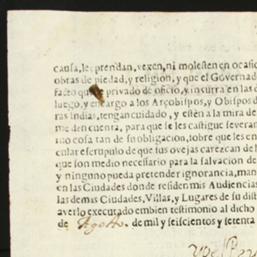 causa, les prendan, vexen, ni molesten en ocasió
obras de piedad, y religion, y que el Governad
facto quede privado de oficio, è incurra en las
luego, y encargo a los Arçobispos, y Obispos d
ras Indias, tengan cuidado, y estèn a la mira d
me den cuenta, para que se les castigue severam
mo cosa tan de su obligacion, sobre que les en
cular escrupulo de que sus ovejas carezcan de l
que son medio necessario para la salvacion de
y ninguno pueda pretender ignorancia, man
en las Ciudades donde residen mis Audiencias
las demàs Ciudades, Villas, y Lugares de su dist
averlo executado embien testimonio al dicho
de Agosto de mil y seiscientos y setenta